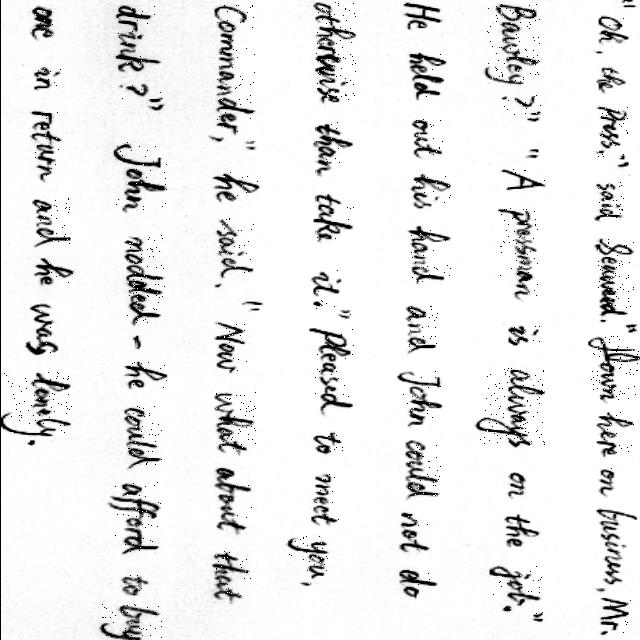 "Oh, the Press," said Seward. "Down here on business, Mr.
Bawley?" "A pressman is always on the job."
He held out his hand and John could not do
otherwise than take it. "Pleased to meet you,
Commander," he said. "Now what about that
drink?" John nodded - he could afford to buy
one in return and he was lonely.